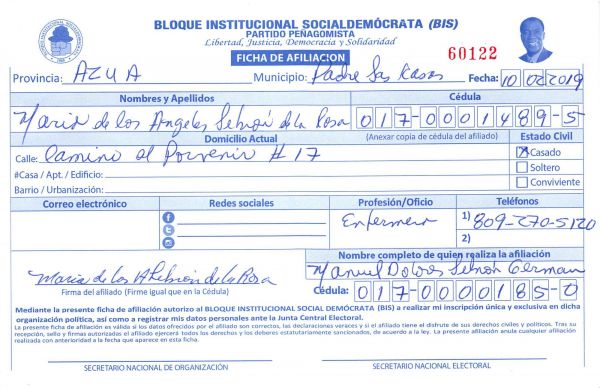 BLOQUE INSTITUCIONAL SOCIALDEMÓCRATA (BIS)
PARTIDO PEÑAGOMISTA
Libertad, Justicia, Democracia y Solidaridad
FICHA DE AFILIACION
60122
Provincia: AZUA Municipio: Padre Las Casas Fecha: 10/02/2019
Nombres y Apellidos Cédula
Maria de los Angeles Lebrón de la Rosa 017-0001489-5
Domicilio Actual (Anexar copia de cédula del afiliado) Estado Civil
Calle: Camino al Porvenir #17 X Casado
#Casa / Apt. / Edificio: Soltero
Barrio / Urbanización: Conviviente
Correo electrónico Redes sociales Profesión/Oficio Teléfonos
Enfermera 1) 809-270-5120
2)
Nombre completo de quien realiza la afiliación
Maria de los A Lebrón de la Rosa Manuel Lebrón German
Firma del afiliado (Firme igual que en la Cédula) Cédula: 017-0000185-0
Mediante la presente ficha de afiliación autorizo al BLOQUE INSTITUCIONAL SOCIAL DEMÓCRATA (BIS) a realizar mi inscripción única y exclusiva en dicha
organización política, así como a registrar mis datos personales ante la Junta Central Electoral.
La presente ficha de afiliación es válida si los datos ofrecidos por el afiliado son correctos, las declaraciones veraces y si el afiliado tiene el disfrute de sus derechos civiles y políticos. Tras su
recepción, sello y firmas autorizadas el afiliado ejercerá todos los derechos y los deberes estatutariamente sancionados, de acuerdo a la ley. La presente afiliación anula cualquier afiliación
realizada con anterioridad a la fecha que aparece en esta ficha.
SECRETARIO NACIONAL DE ORGANIZACIÓN SECRETARIO NACIONAL ELECTORAL